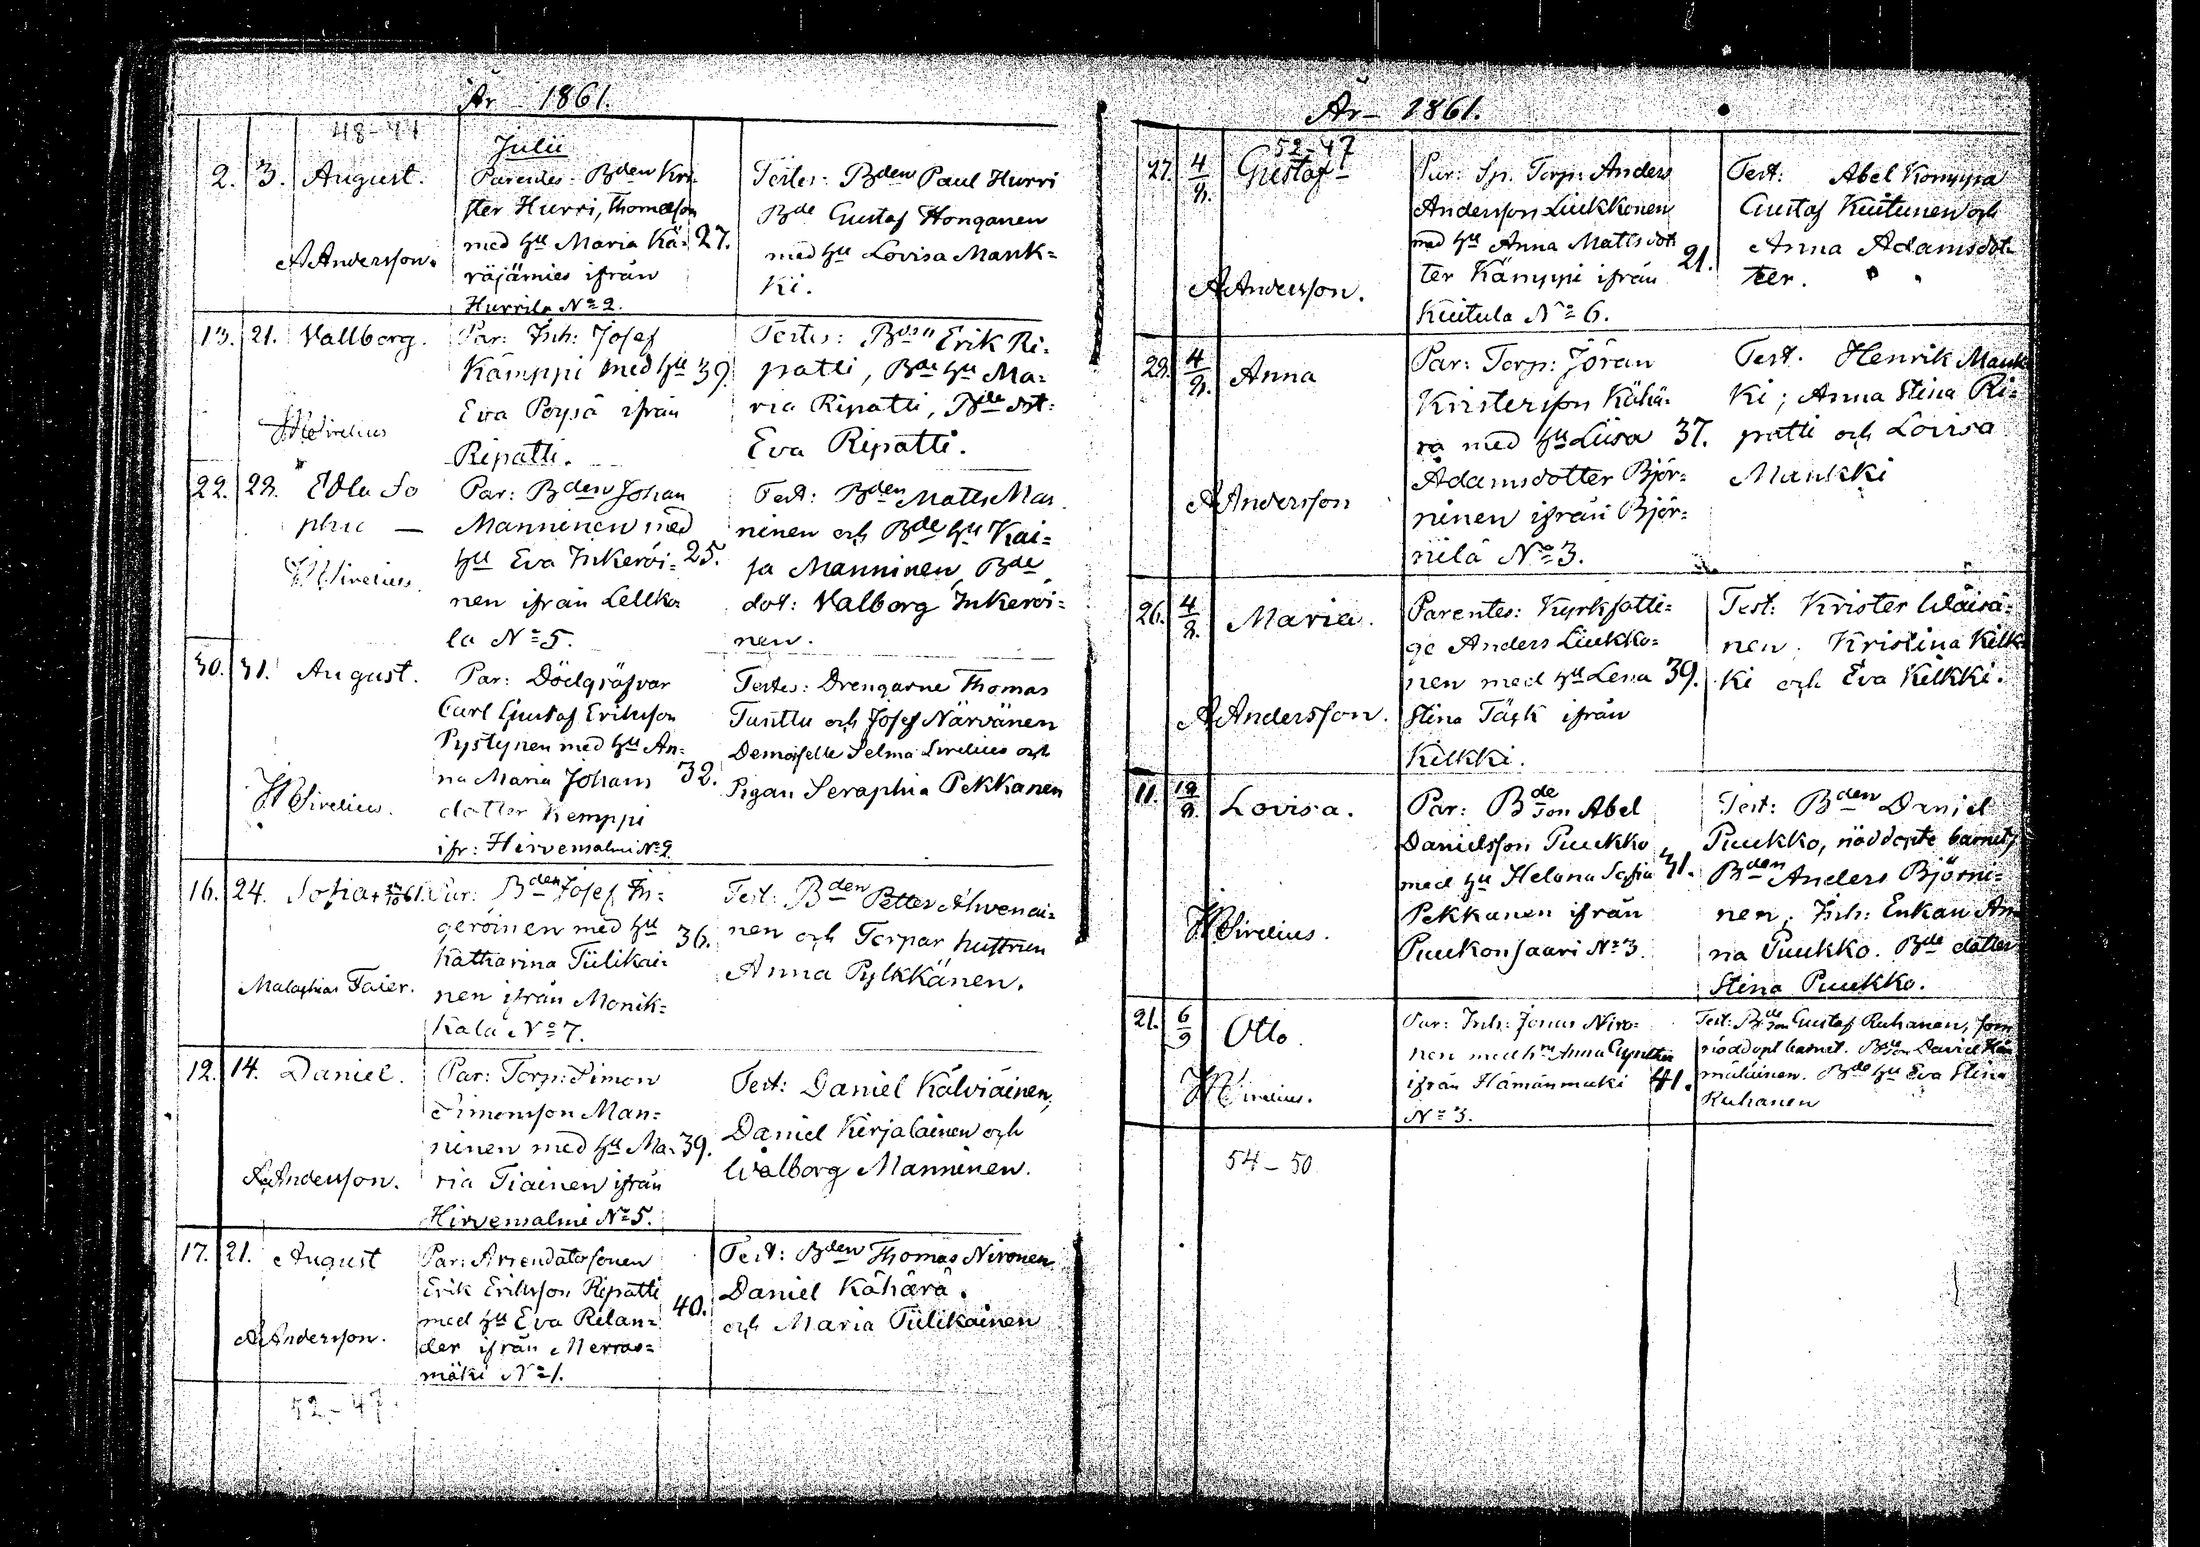 År 1861.
48-44
Julii
2. 3. August. Parentes: Bden Kri-
ster Hurri, Thomasson
med hu Maria Kä- 27.
räjämies ifrån
Hurrila No 2.
A Andersson.
Testes: Bden Paul Hurri
Bde Gustaf Honganen
med hu Lovisa Mank=
ki.
13. 21. Vallborg. Par: Inh: Josef
Kämppi med hu 39.
Eva Poysä ifrån
Ripatti.
W Sirelius
Testes: Bden Erik Ri=
patti, Bde hu Ma=
ria Ripatti, Bde dot:
Eva Ripatti.
22. 28. Edla So
phie — Par: Bden Johan
Manninen med
hu Eva Inkeröi= 25.
nen ifrån Lellko
la No 5.
W Sirelius.
Test: Bden Matts Man
ninen och Bde hu Kai=
sa Manninen, Bde
dot: Valborg Inkeröi=
nen.
30. 31. August. Par: Dödgräfvar
Carl Gustaf Eriksson
Pystynen med hu An=
na Maria Johans 32.
dotter Kemppi
ifr: Hirvensalmi No 2
W Sirelius.
Testes: Drengarne Thomas
Tanttu och Josef Närvänen
Demoiselle Selma Sirelius och
Pigan Seraphia Pekkanen
16. 24. Sofia Par: Bden Josef In=
geröinen med hu
Katharina Tiilikai= 36.
nen ifrån Monik=
kala No 7.
Malachias Taier.
Test: Bden Petter Ahvenai=
nen och Torpar hustrun
Anna Pylkkänen.
12. 14. Daniel. Par: Torp: Simon
Simonsson Man=
ninen med hu Ma= 39.
ria Tiainen ifrån
Hirvensalmi No 5.
A Andersson.
Test: Daniel Kälviäinen,
Daniel Kirjalainen och
Walborg Manninen.
17. 21. August Par: Arrendatorsonen
Erik Eriksson Ripatti
med hu Eva Relan= 40.
der ifrån Merras=
mäki No 1.
A Andersson.
Test: Bden Thomas Nironen
Daniel Kähärä.
och Maria Tiilikainen
52-47
År 1861.
52-47
27. 4/8. Gustaf Par: Sp. Torp: Anders
Andersson Liukkonen
med hu Anna Mattsdot
ter Kämppi ifrån 21.
Kuitula No 6.
A Andersson.
Test: Abel Komppa
Gustaf Kuitunen och
Anna Adamsdot
ter.
28. 4/8. Anna Par: Torp: Jöran
Kristersson Kähä=
rä med hu Liisa 37.
Adamsdotter Björ=
ninen ifrån Björ=
nilä No 3.
A Andersson
Test. Henrik Mank
ki; Anna Stina Ri=
patti och Lovisa
Mankki
26. 4/8. Maria. Parentes: Kyrkfatti=
ge Anders Liukko=
nen med hu Lena 39.
Stina Täsk ifrån
Kilkki.
A Andersson.
Test: Krister Wäisä=
nen, Kristina Kilk
ki och Eva Kilkki.
11. 18/8. Lovisa. Par: Bde son Abel
Danielsson Puukko,
med hu Helena Sofia 31.
Pekkanen ifrån
Puukonsaari No 3.
W Sirelius.
Test: Bden Daniel
Puukko, nöddöpte barnet,
Bden Anders Björni=
nen, Inh: Enkan An
na Puukko. Bde dotter
Stina Puukko.
21. 6/9 Otto. Par: Inh: Jonas Niro=
nen med hu Anna Gynther
ifrån Hämänmäki 41.
No 3.
W Sirelius.
Test: Bde son Gustaf Ruhanen, som
nöddöpt barnet. Bde son David Häm
mäläinen. Bde hu Eva Stina
Ruhanen
54-50